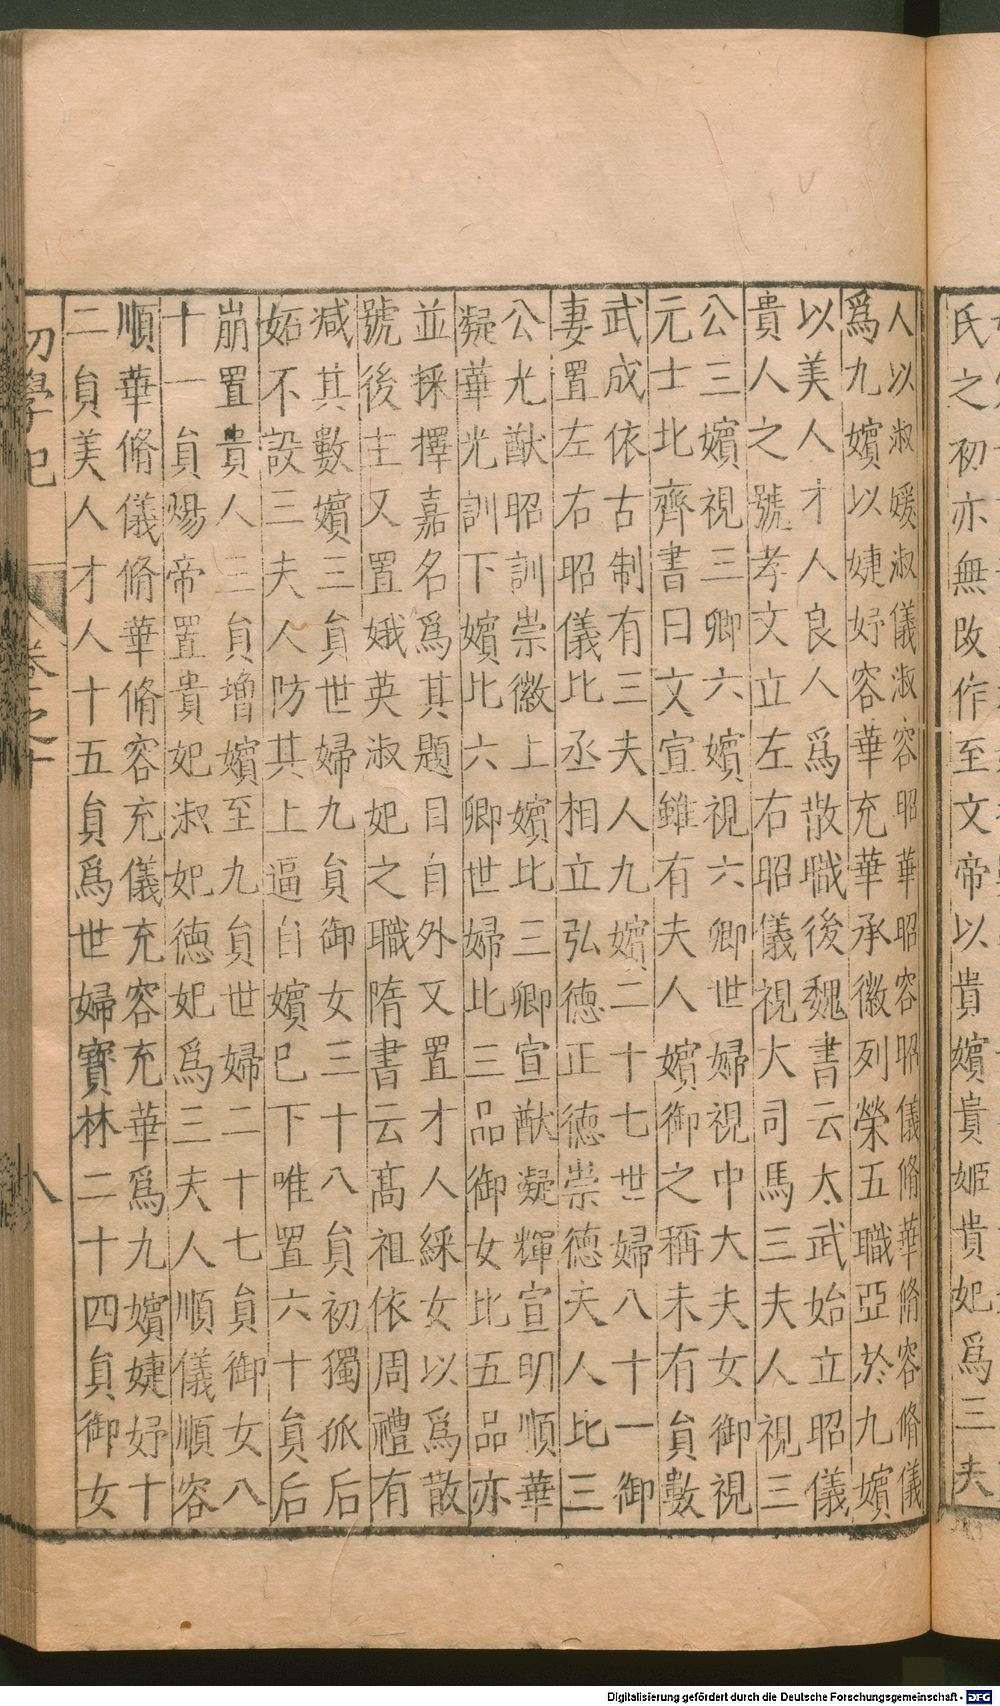 氏之初亦無改作至文帝以貴嬪貴姬貴妃爲三夫
人以淑媛淑儀淑容昭華昭容昭儀脩華脩容脩儀
爲九嬪以婕妤容華充華承徽列榮五職亞於九嬪
以美人才人良人爲散職後魏書云太武始立昭儀
貴人之號孝文立左右昭儀視大司馬三夫人視三
公三嬪視三卿六嬪視六卿世婦視中大夫女御視
元士北齊書曰文宣雖有夫人嬪御之稱未有員數
武成依古制有三夫人九嬪二十七世婦八十一御
妻置左右昭儀比丞相立弘德正德崇德夫人比三
公光猷昭訓崇徽上嬪比三卿宣猷凝輝宣明順華
凝華光訓下嬪比六卿世婦比三品御女比五品亦
並採擇嘉名爲其題目自外又置才人綵女以爲散
號後主又置娥英淑妃之職隋書云高祖依周禮有
减其數嬪三員世婦九員御女三十八員初獨孤后
妬不設三夫人防其上逼自嬪巳下唯置六十員后
崩置貴人三員增嬪至九員世婦二十七員御女八
十一員煬帝置貴妃淑妃德妃爲三夫人順儀順容
順華脩儀脩華脩容充儀充容充華爲九嬪婕妤十
二員美人才人十五員爲世婦寶林二十四員御女
初學記 卷之十 八
Digitalisierung gefördert durch die Deutsche Forschungsgemeinschaft - DFG